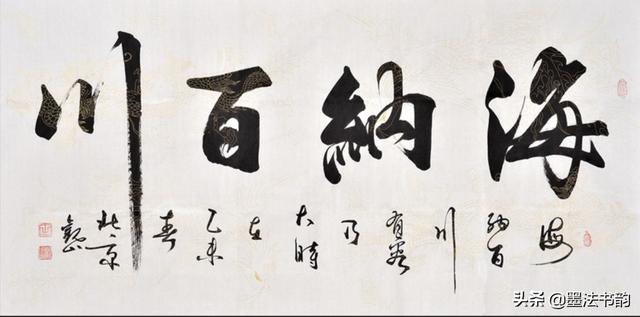 海納百川
海
納百
川
有容
乃
大時
在
乙未
春
北京
头条 @墨法书韵